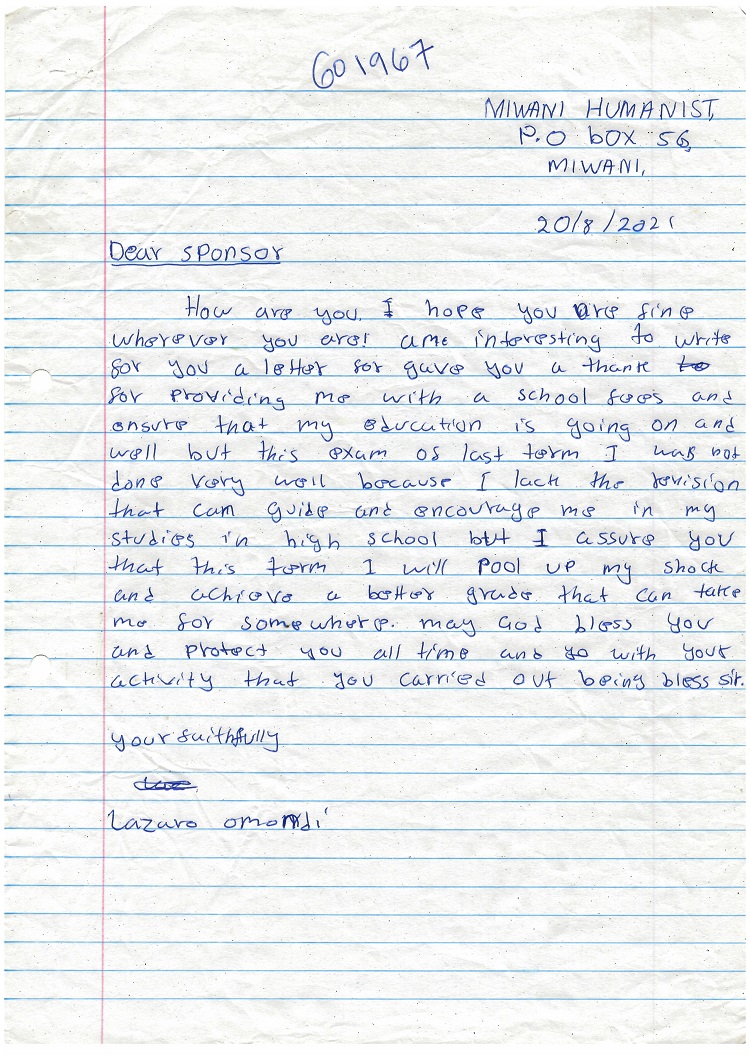 601967
MIWANI HUMANIST,
P.O box 56,
MIWANI,
20/8/2021
Dear sponsor
How are you. I hope you are fine
wherever you are! ame interesting to write
for you a letter for gave you a thank to
for providing me with a school fees and
ensure that my education is going on and
well but this exam of last term I was not
done very well because I lack the revision
that cam guide and encourage me in my
studies in high school but I assure you
that this term I will pool up my shock
and achieve a better grade that can take
me for somewhere. may God bless you
and protect you all time and go with your
activity that you carried out being bless sir.
your faithfully
Lazaro omondi